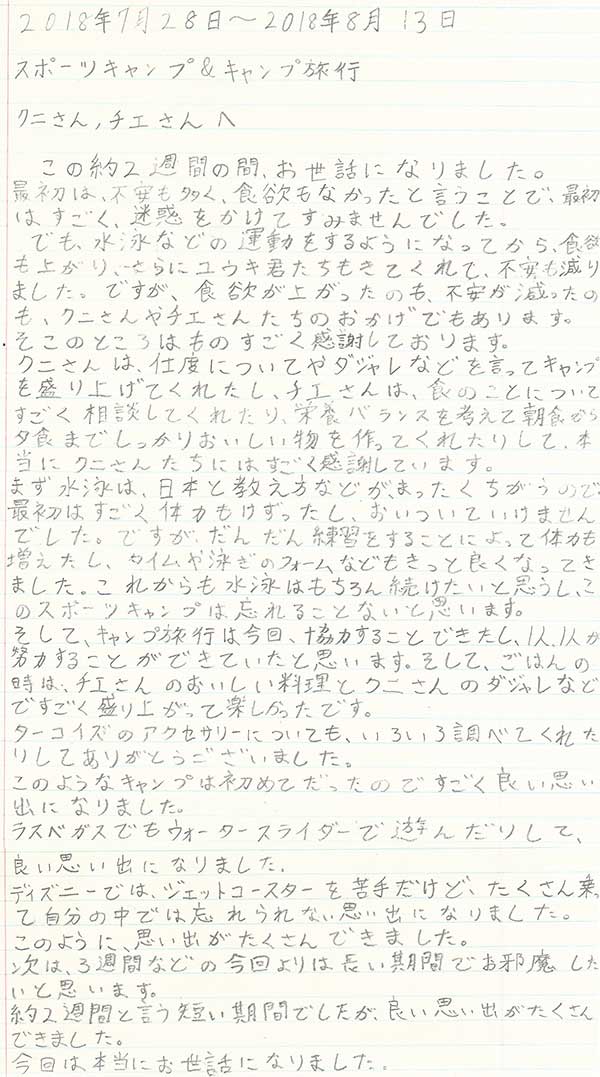 2018年7月28日〜2018年8月13日
スポーツキャンプ&キャンプ旅行
クニさん,チエさんへ
この約2週間の間、お世話になりました。
最初は、不安も多く、食欲もなかったと言うことで、最初
はすごく、迷惑をかけてすみませんでした。
でも、水泳などの運動をするようになってから、食欲
も上がり、さらにユウキ君たちもきてくれて、不安も減り
ました。ですが、食欲が上がったのも、不安が減ったの
も、クニさんやチエさんたちのおかげでもあります。
そこのところはものすごく感謝しております。
クニさんは、仕度についてやダジャレなどを言ってキャンプ
を盛り上げてくれたし、チエさんは、食のことについて
すごく相談してくれたり、栄養バランスを考えて朝食から
夕食までしっかりおいしい物を作ってくれたりして、本
当にクニさんたちにはすごく感謝しています。
まず水泳は、日本と教え方などが、まったくちがうので
最初はすごく体力もけずったし、おいついていけません
でした。ですが、だんだん練習をすることによって体力も
増えたし、タイムや泳ぎのフォームなどもきっと良くなってき
ました。これからも水泳はもちろん続けたいと思うし、こ
のスポーツキャンプは忘れることないと思います。
そして、キャンプ旅行は今回、協力することできたし、1人、1人が
努力することができていたと思います。そして、ごはんの
時は、チエさんのおいしい料理とクニさんのダジャレなど
ですごく盛り上がって楽しかったです。
ターコイズのアクセサリーについても、いろいろ調べてくれた
りしてありがとうございました。
このようなキャンプは初めてだったのですごく良い思い
出になりました。
ラスベガスでもウォータースライダーで遊んだりして、
良い思い出になりました。
ディズニーでは、ジェットコースターを苦手だけど、たくさん乗っ
て自分の中では忘れられない思い出になりました。
このように、思い出がたくさんできました。
次は、3週間などの今回よりは長い期間でお邪魔した
いと思います。
約2週間と言う短い期間でしたが、良い思い出がたくさん
できました。
今回は本当にお世話になりました。